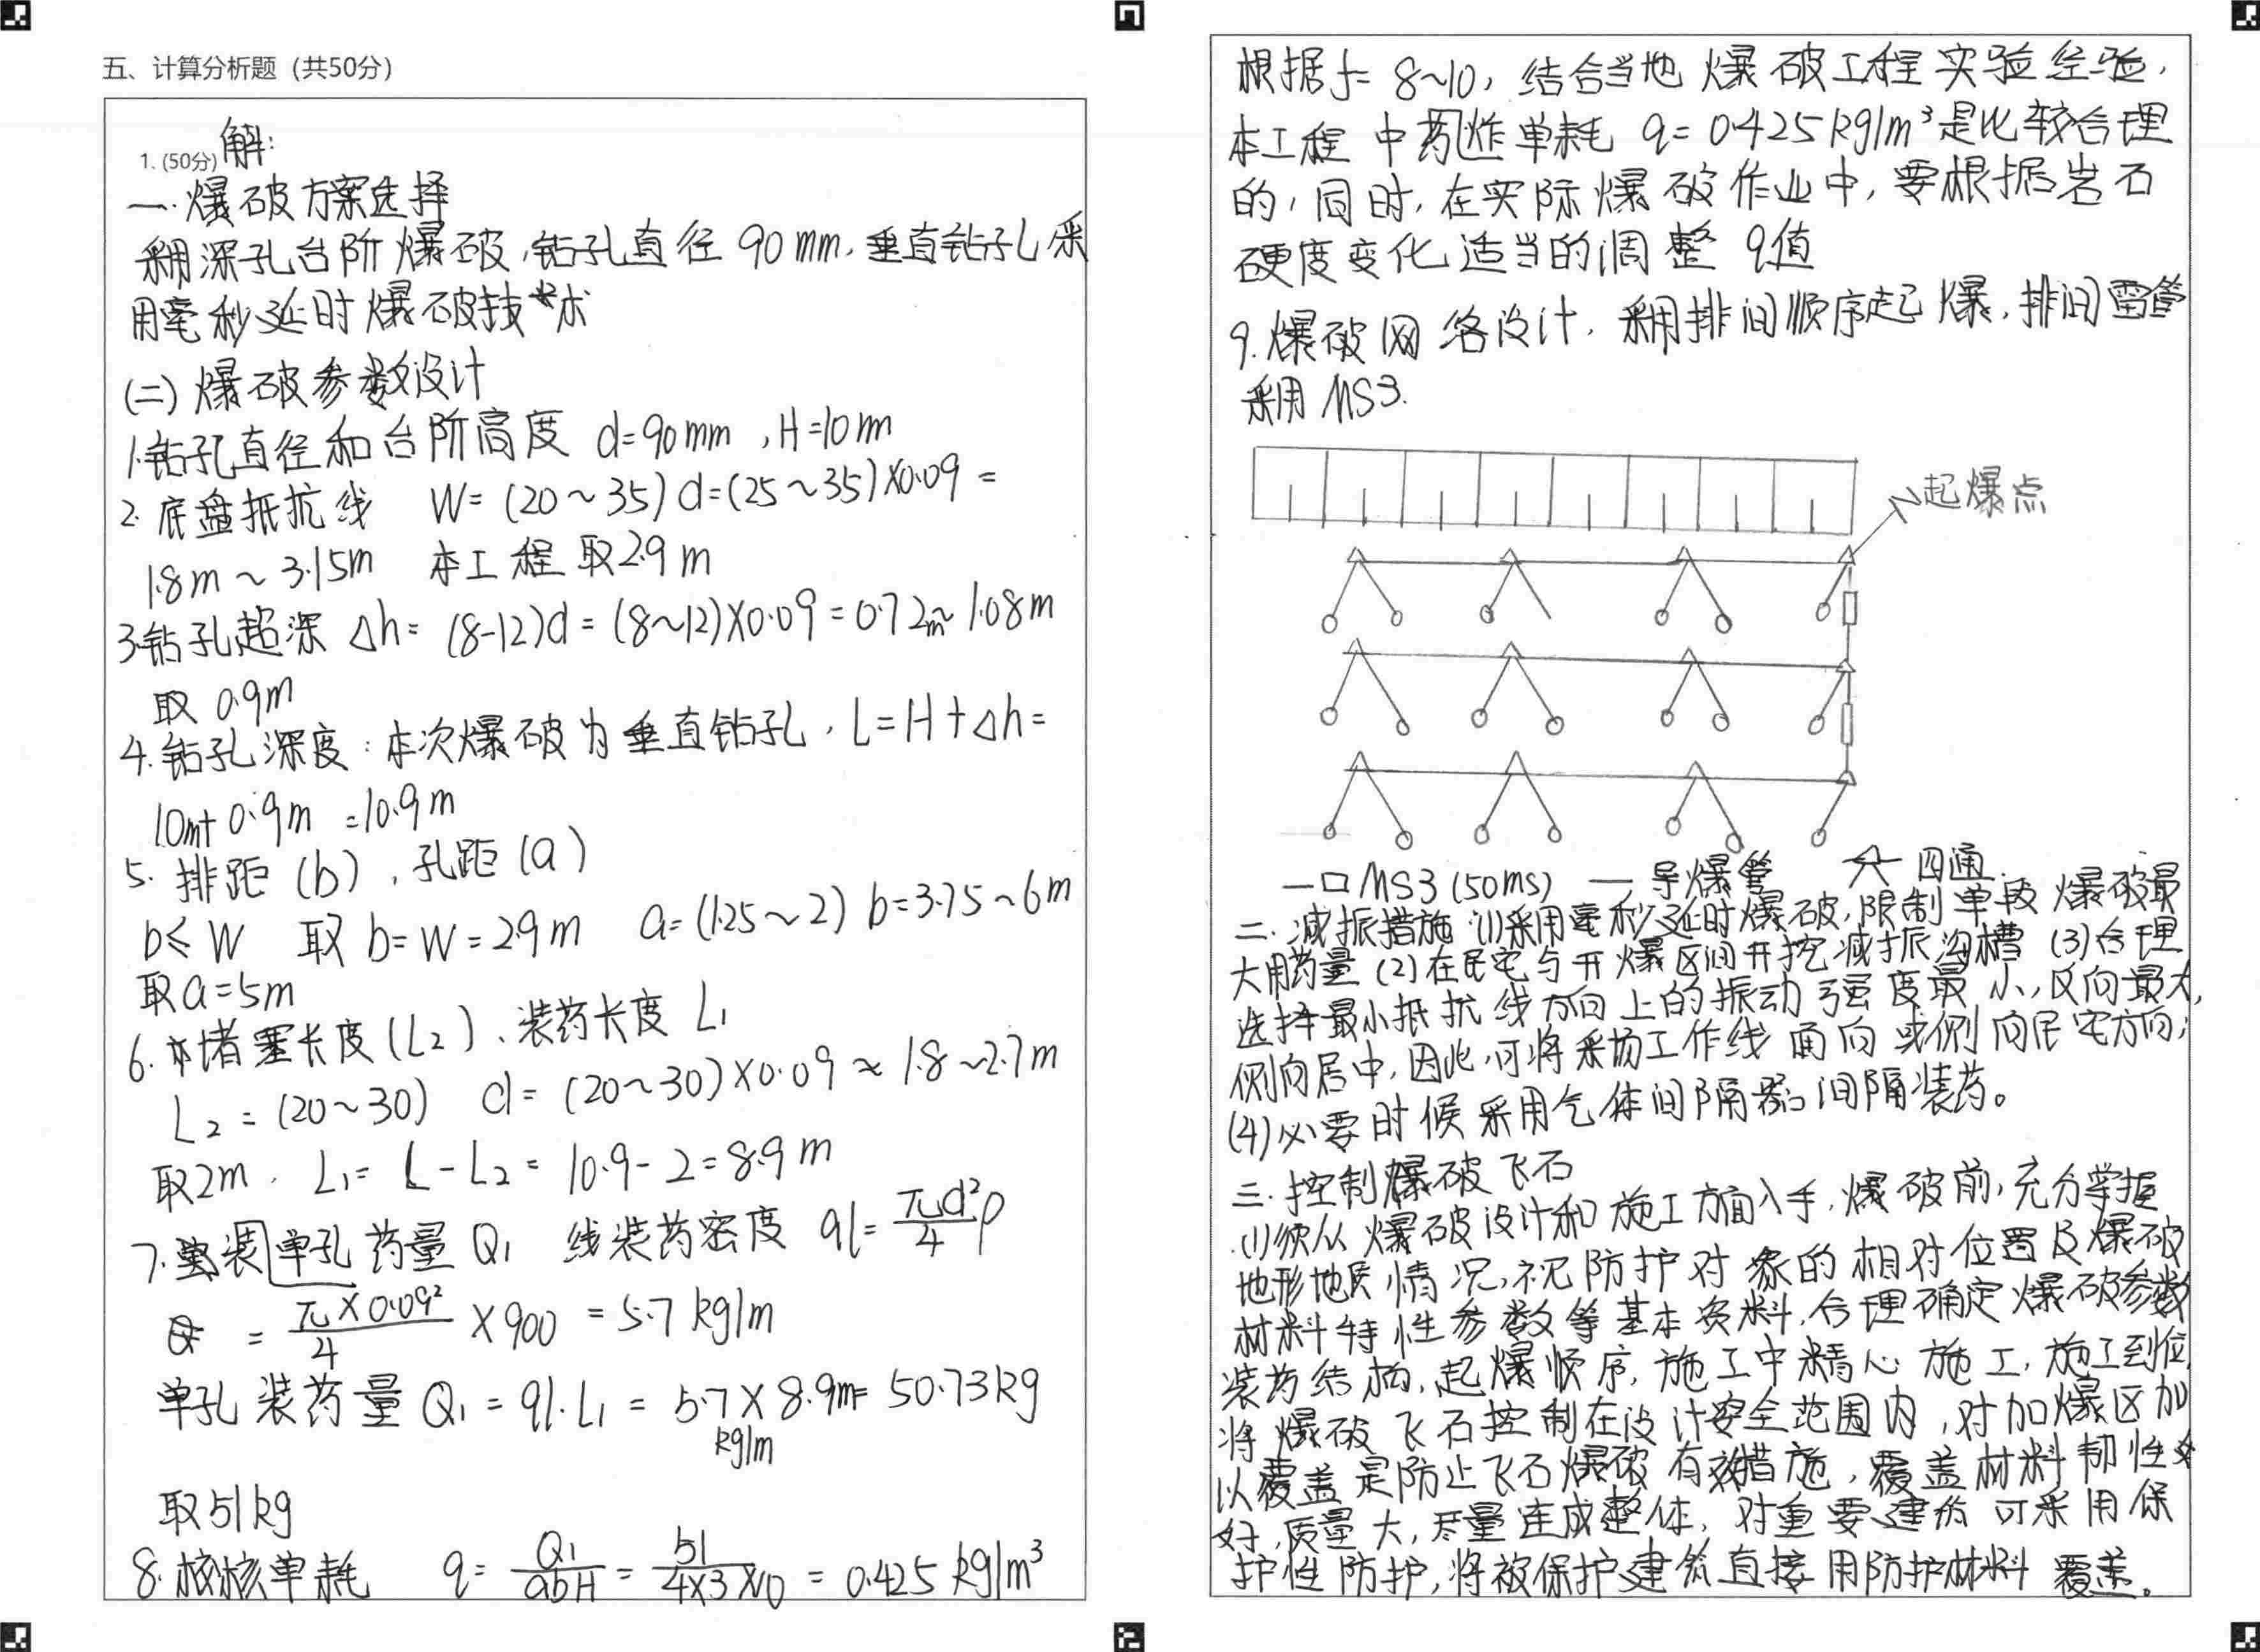 五、计算分析题（共50分）
1. (50分) 解:
一. 爆破方案选择
采用深孔台阶爆破,钻孔直径 90mm,垂直钻孔采
用毫秒延时爆破技术
(二) 爆破参数设计
1.钻孔直径和台阶高度 d=90mm ,H=10m
2. 底盘抵抗线 W=(20~35)d=(25~35)×0.09=
1.8m~3.15m 本工程取2.9m
3.钻孔超深 Δh=(8-12)d=(8~12)×0.09=0.72m~1.08m
取 0.9m
4. 钻孔深度:本次爆破为垂直钻孔, L=H+Δh=
10m+0.9m=10.9m
5. 排距(b),孔距(a)
b≤W 取 b=W=2.9m a=(1.25~2)b=3.75~6m
取a=5m
6. 堵塞长度(L2)、装药长度 L1
L2=(20~30) d=(20~30)×0.09≈1.8~2.7m
取2m, L1=L-L2=10.9-2=8.9m
7. 装单孔药量Q1 线装药密度 ql=πd²/4 ρ
=π×0.09²/4 ×900=5.7kg/m
单孔装药量Q1=ql·L1=5.7kg/m×8.9m=50.73kg
取51kg
8. 核单耗 q=Q1/abH=51/4×3×10=0.425kg/m³
根据f=8~10,结合当地爆破工程实验经验,
本工程中药炸单耗 q=0.425kg/m³是比较合理
的,同时,在实际爆破作业中,要根据岩石
硬度变化适当的调整q值
9.爆破网络设计,采用排间顺序起爆,排间雷管
采用MS3.
起爆点
—口MS3(50ms) — 导爆管 四通
二. 减振措施 (1)采用毫秒延时爆破,限制单段爆破最
大用药量 (2)在民宅与开爆区间开挖减振沟槽 (3)合理
选择最小抵抗线方向上的振动强度最小,反向最大,
侧向居中,因此,可将采场工作线面向或侧向民宅方向;
(4)必要时候采用气体间隔器间隔装药。
三. 控制爆破飞石
(1)须从爆破设计和施工方面入手,爆破前,充分掌握
地形地质情况,视防护对象的相对位置及爆破
材料特性参数等基本资料,合理确定爆破参数
装药结构,起爆顺序,施工中精心施工,施工到位,
将爆破飞石控制在设计安全范围内,对加爆区加
以覆盖是防止飞石爆破有效措施,覆盖材料韧性
好,质量大,尽量连成整体,对重要建筑可采用保
护性防护,将被保护建筑直接用防护材料覆盖。